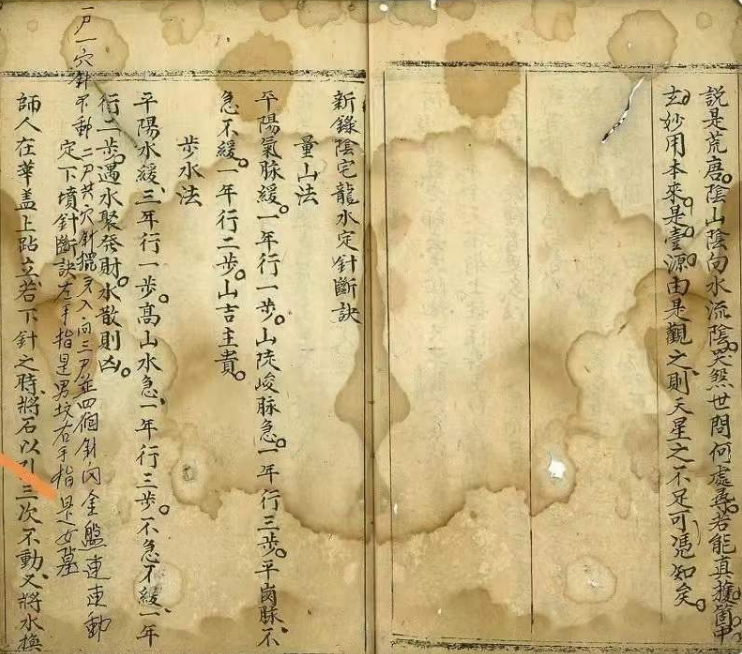 說是荒唐陰山陰向水流陰笑煞世問何處尋若能直獲箇中
玄妙用本來是壹源由是觀之則天星之不足可憑知矣
新錄陰宅龍水定針斷訣
量山法
平陽氣脉緩一年行一步山陡峻脉急一年行三步平崗脉不
急不緩一年行二步山吉主貴
步水法
平陽水緩三年行一步高山水急一年行三步不急不緩一年
行二步遇水聚發財水散則凶
一尸一穴針不動二尸共穴針擺入向三尸並四個針向金盤連連動
定下墳針斷訣左手指是男坟右手指是女墓
師人在華盖上跕立若下針之時將石以引三次不動又將水換